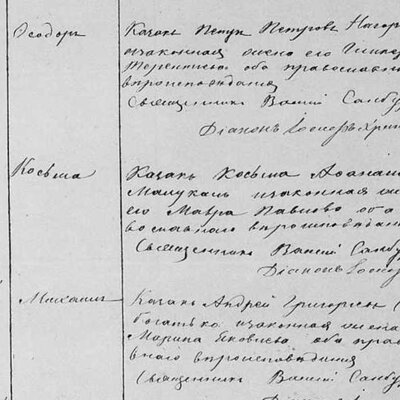 Ѳеодоръ
Казакъ Петръ Петровъ Нагор
и законная жена его
Терентьева оба православн
вѣроисповѣданія
Священникъ Василій Самбу
Діаконъ Іосифъ Хри
Косьма
Казакъ Косьма Аѳанас
и законная жена
его Мавра Павлова оба
вославнаго вѣроисповѣданія
Священникъ Василій Самбу
Діаконъ Іосиф
Михаилъ
Казакъ Андрей Григорьевъ
богатько и законная жена
Марина Яковлева оба прав
внаго вѣроисповѣданія
Священникъ Василій Самбу
Діаконъ І